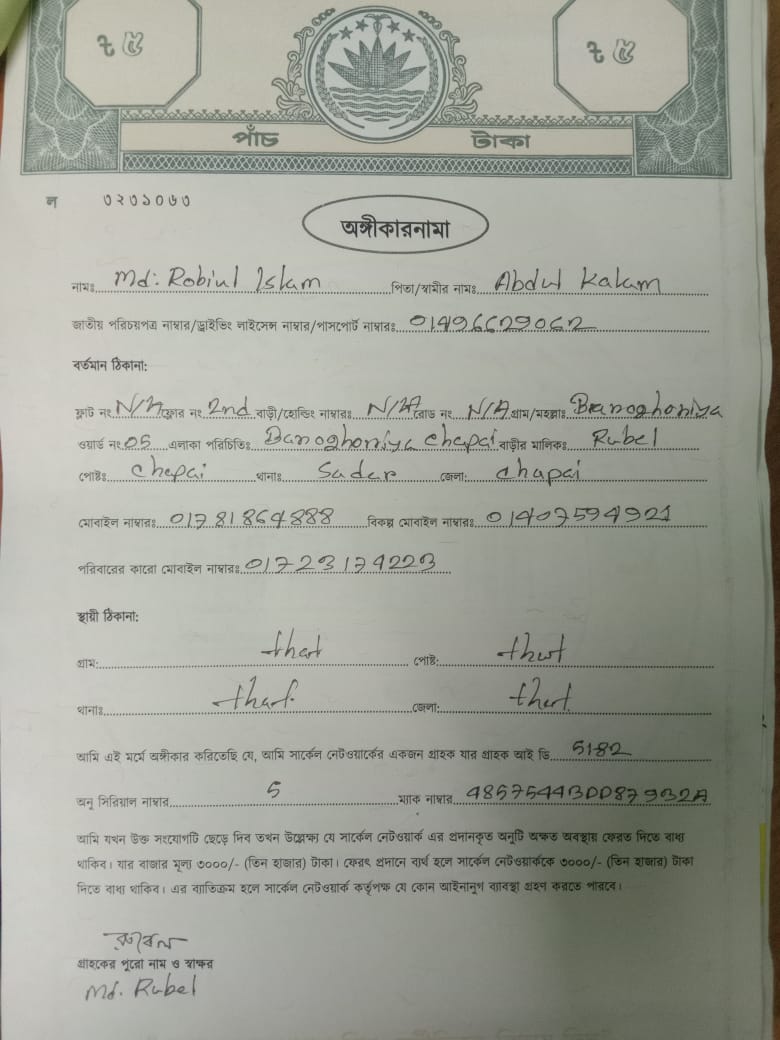 ৳ ৫ ৳ ৫
পাঁচ টাকা
ল ৩২৩১০৬৩
অঙ্গীকারনামা
নামঃ Md: Robiul Islam পিতা/স্বামীর নামঃ Abdul Kalam
জাতীয় পরিচয়পত্র নাম্বার/ড্রাইভিং লাইসেন্স নাম্বার/পাসপোর্ট নাম্বারঃ 01496629062
বর্তমান ঠিকানা:
ফ্লাট নং N/A ফ্লোর নং 2nd বাড়ী/হোল্ডিং নাম্বারঃ N/A রোড নং N/A গ্রাম/মহল্লাঃ Baroghoriya
ওয়ার্ড নং 05 এলাকা পরিচিতিঃ Baroghoriya chapai বাড়ীর মালিকঃ Rubel
পোষ্টঃ chapai থানাঃ Sadar জেলা: chapai
মোবাইল নাম্বারঃ 01781864888 বিকল্প মোবাইল নাম্বারঃ 01407594921
পরিবারের কারো মোবাইল নাম্বারঃ 01723174223
স্থায়ী ঠিকানা:
গ্রাম: that পোষ্ট: that
থানাঃ that জেলা: that
আমি এই মর্মে অঙ্গীকার করিতেছি যে, আমি সার্কেল নেটওয়ার্কের একজন গ্রাহক যার গ্রাহক আই ডি 5182
অনু সিরিয়াল নাম্বার 5 ম্যাক নাম্বার 485754430087932A
আমি যখন উক্ত সংযোগটি ছেড়ে দিব তখন উল্লেক্ষ্য যে সার্কেল নেটওয়ার্ক এর প্রদানকৃত অনুটি অক্ষত অবস্থায় ফেরত দিতে বাধ্য
থাকিব। যার বাজার মূল্য ৩০০০/- (তিন হাজার) টাকা। ফেরৎ প্রদানে ব্যর্থ হলে সার্কেল নেটওয়ার্ককে ৩০০০/- (তিন হাজার) টাকা
দিতে বাধ্য থাকিব। এর ব্যাতিক্রম হলে সার্কেল নেটওয়ার্ক কর্তৃপক্ষ যে কোন আইনানুগ ব্যাবস্থা গ্রহণ করতে পারবে।
রুবেল
গ্রাহকের পুরো নাম ও স্বাক্ষর
Md. Rubel